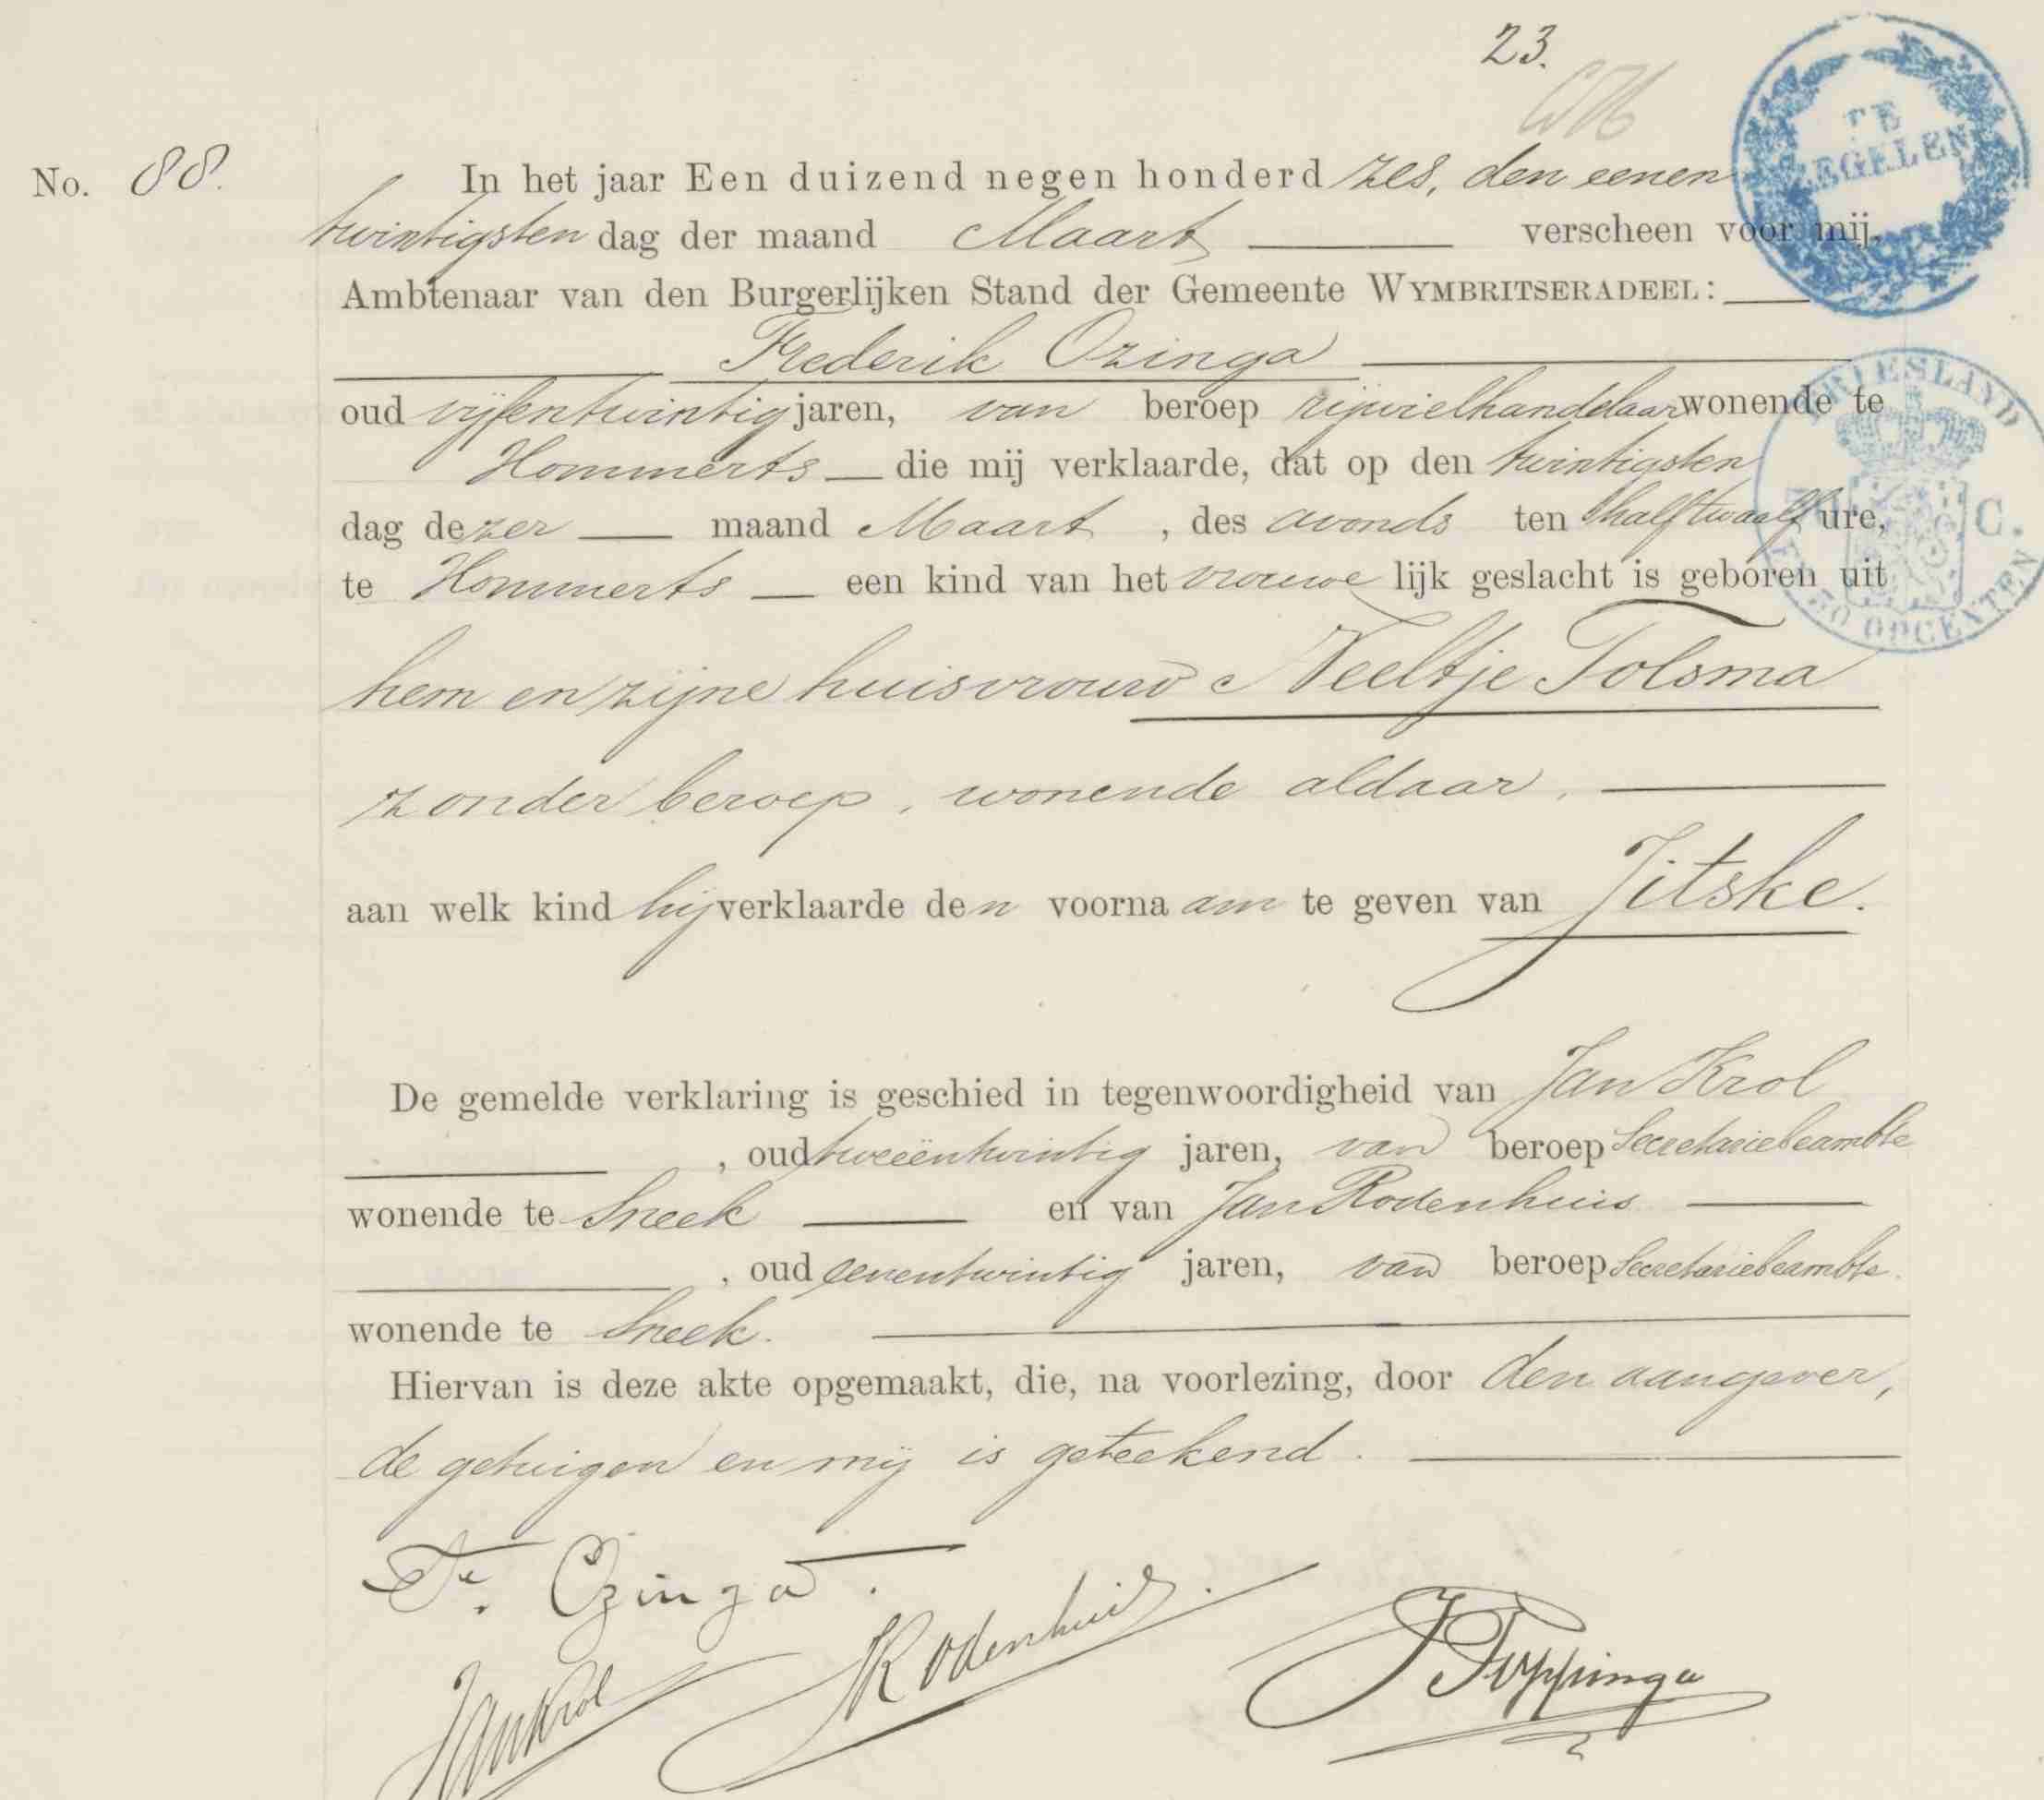 23.
TE
ZEGELEN
No. 88.
In het jaar Een duizend negen honderd zes, den eenen
twintigsten dag der maand Maart verscheen voor mij,
Ambtenaar van den Burgerlijken Stand der Gemeente WYMBRITSERADEEL:
Frederik Ozinga
oud vijfentwintig jaren, van beroep rijwielhandelaar wonende te
Hommerts die mij verklaarde, dat op den twintigsten
dag dezer maand Maart , des avonds ten half twaalf ure,
te Hommerts een kind van het vrouwe lijk geslacht is geboren uit
FRIESLAND
C.
50 OPCENTEN
hem en zijne huisvrouw Neeltje Tolsma
zonder beroep, wonende aldaar,
aan welk kind hij verklaarde den voornaam te geven van Jitske.
De gemelde verklaring is geschied in tegenwoordigheid van Jan Krol
, oud tweeëntwintig jaren, van beroep Secretariebeambte
wonende te Sneek en van Jan Rodenhuis
, oud eenentwintig jaren, van beroep Secretariebeambte
wonende te Sneek.
Hiervan is deze akte opgemaakt, die, na voorlezing, door den aangever,
de getuigen en mij is geteekend.
Fr. Ozinga.
JRodenhuis.
Jan Krol